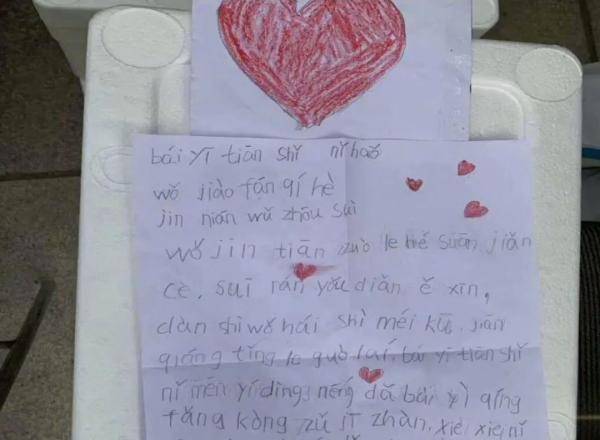 bái yī tiān shǐ nǐ hǎo
wǒ jiào fán qí hè
jīn nián wǔ zhōu suì
wǒ jīn tiān zuò le hé suān jiǎn
cè, suī rán yǒu diǎn ě xīn,
dàn shì wǒ hái shì méi kū, jiān
qiáng tǐng le guò lái, bái yī tiān shǐ
nǐ mén yí dìng néng dǎ bài yì qíng
fáng kòng zǔ jī zhàn, xiè xiè nǐ